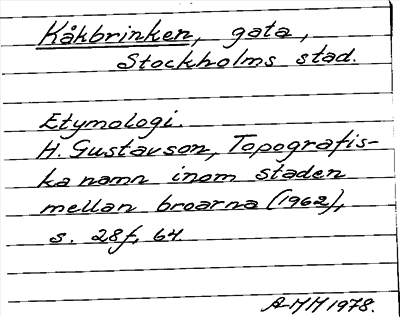 Kåkbrinken, gata,
Stockholms stad.
Etymologi.
H. Gustavson, Topografis-
ka namn inom staden
mellan broarna (1962),
s. 28f, 64.
A-MH 1978.